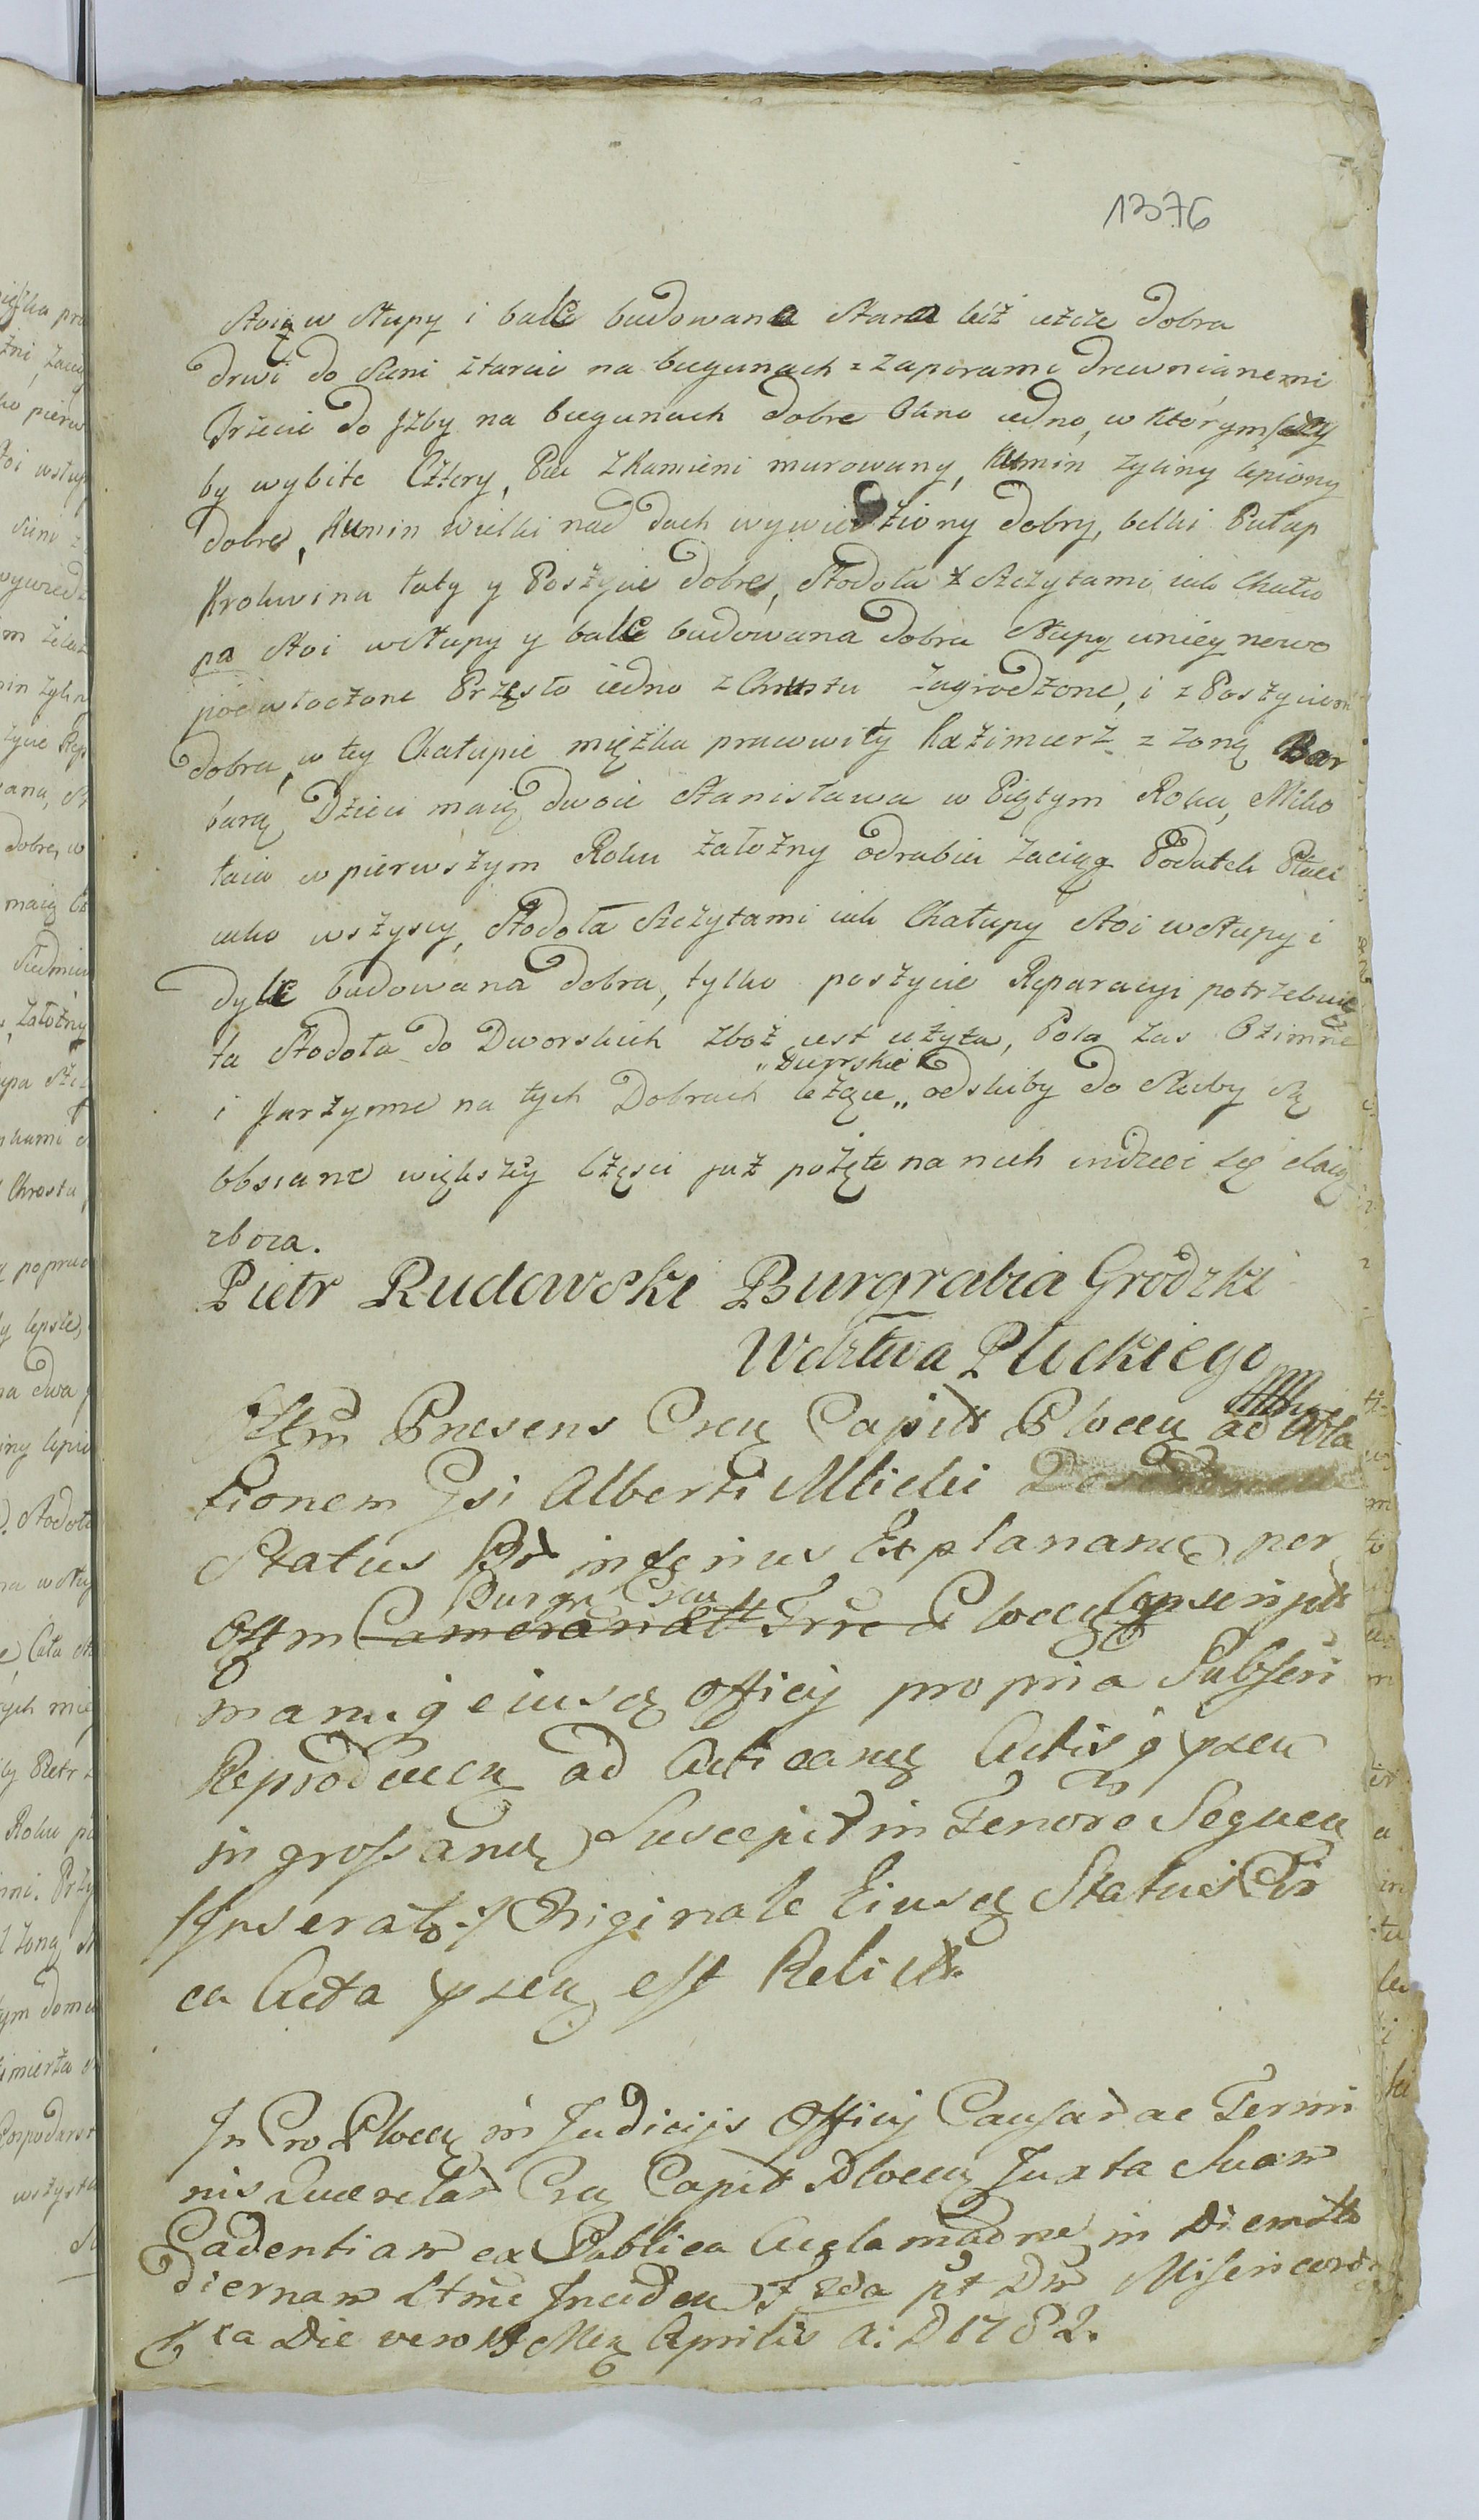 1376
Stoią w Słupy i balle budowana Stara leiź ieszcze dobra
drwi do Sieni ztarcic na biegunach z zaporami drewnianemi
Trzecie do Jzby na biegunach dobre Okno iedno, w którym szy
by wybite Cztery, Piec z Kamieni murowany, Kumin zgliny lepiony
dobre, Kumin wielki nad dach wywiedziony dobry, belki Pułap
Krokwi na łaty y Poszycie dobre, Stodoła z Szczytami iak Chału
pa Stoi w Słupy y balle budowana dobra Słupy u niey nowo
podwłoczone Przęsło iedno z Chrustu zagrodzone, i z Poszyciem
dobra, w tey Chałupie mięzka pracowity Kazimierz z Zoną Bar
barą Dzieci maią dwoie Stanisława w Piątym Roku, Miko
łaia w pierwszym Roku załozny odrabia zaciąg Podatek Płaci
iako wszyscy, Stodoła Szczytami iak Chałupy Stoi w Słupy i
dyle budowana dobra, tylko poszycie Reparacyi potrzebuie
ta Stodoła do Dworskich zboż iest użyta, Pola zas Ozimne
i Jarzynne na tych Dobrach leżące „Dworskie" odskiby do Skiby są
obsiane większey Części już pożęte na nich indzieci się
zboza.
Pietr Rudowski Burgrabia Grodzki
Wdztwa Płockiego
Presens Cren Capit Plocen ad Obla
tionem Gsi Alberti Mlicki
Status Br inferius Explanand per
Offm Burgr Cren Camerarial Trre Plocen Conscript
manuq eiusd Officij propria Subscri
Reproducen ad Acticand Actis q psen
ingrossand Suscepit in Tenore Sequen
/Inserat:/ Originale Eiusd Status Cir
ca Acta psen est Relict
In Cro Plocen in Judicijs Officij Causar ac Termi
nis Querelar Cren Capit Plocen Juxta Suam
Cadentiam ex Publica Acclamaone in Diem
diernam Ltme Inciden F 2da pt Dm Misericord
ia Die vero 15 Men Aprilis A: D 1782.